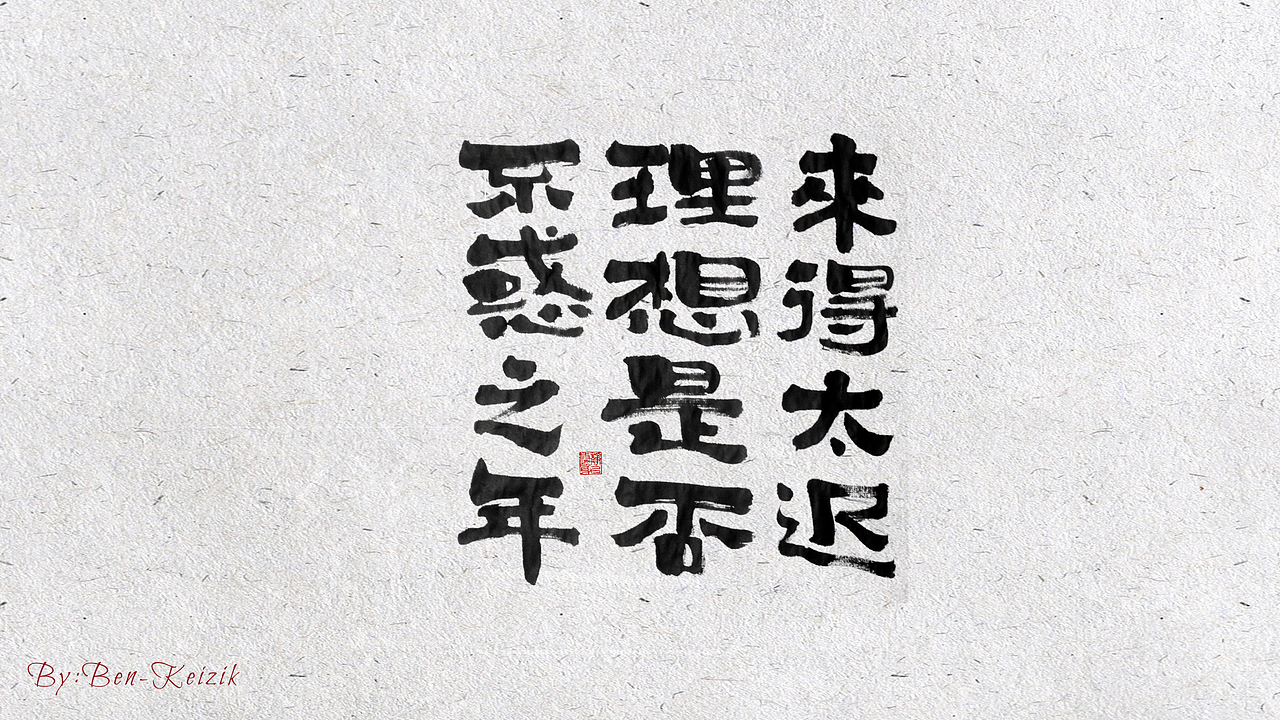 不惑之年
理想是否
來得太迟
By:Ben-Keizik